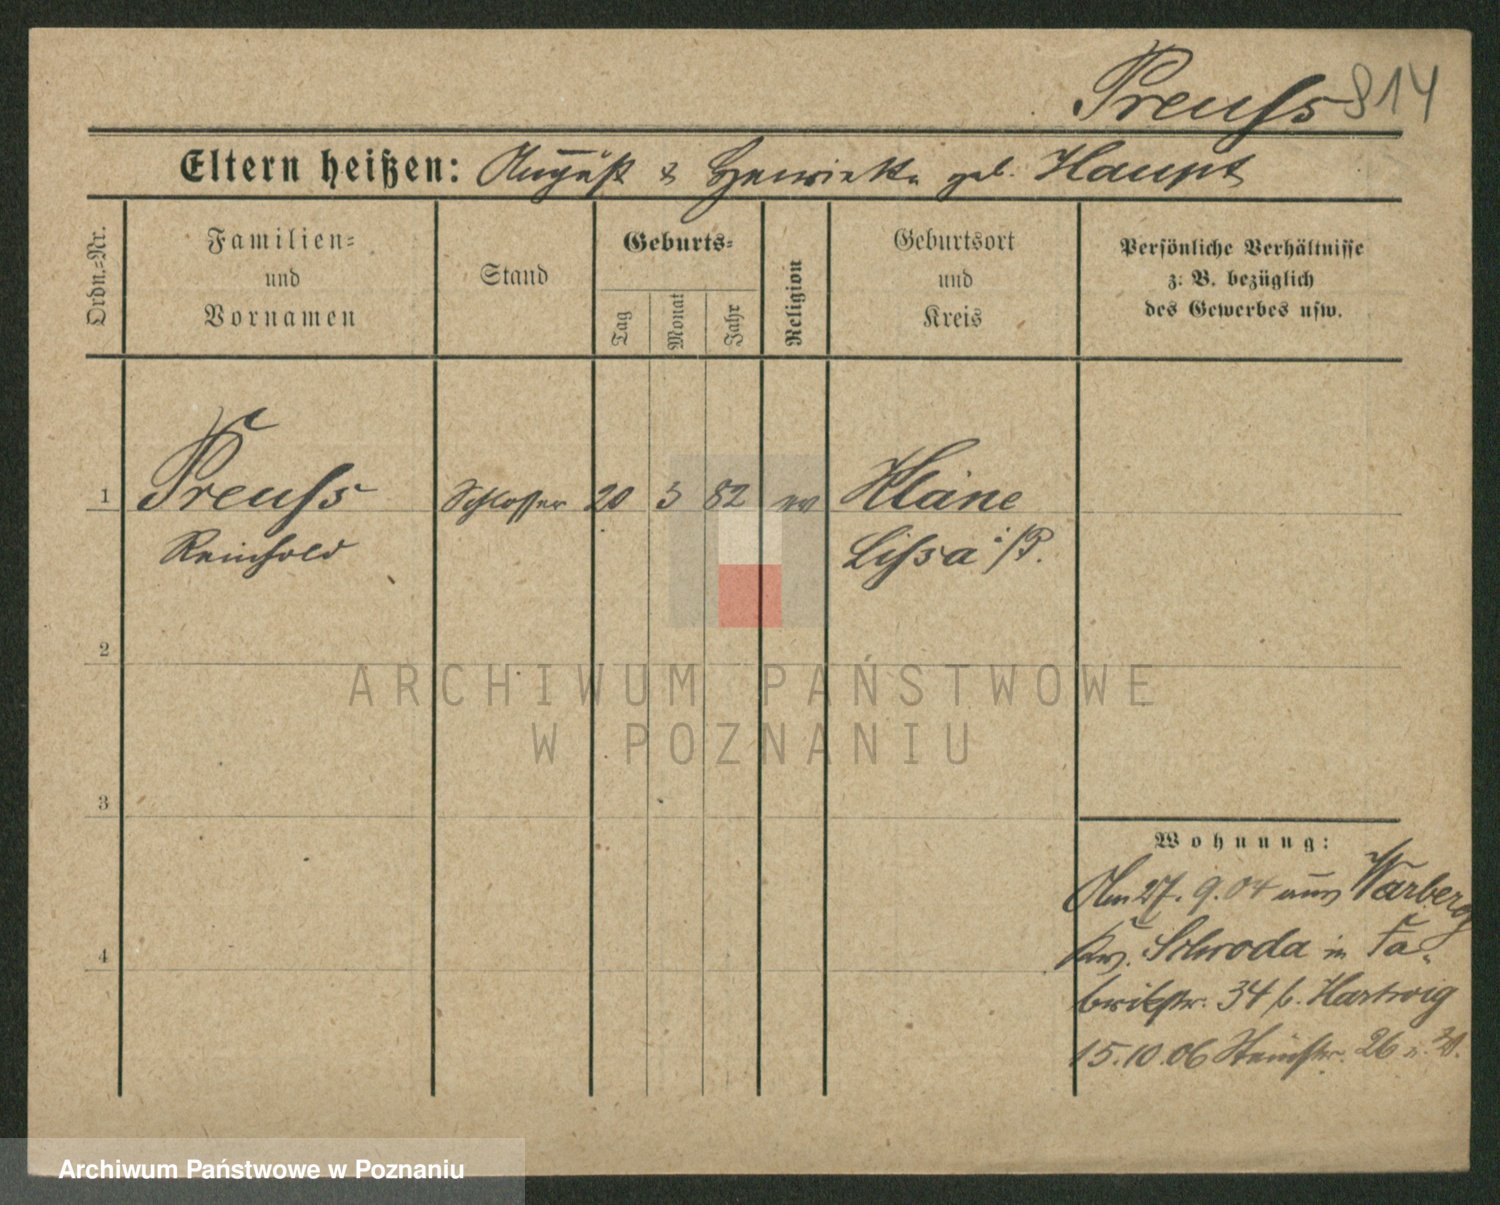 Preuſs 814
Eltern heißen: August & Henriette geb. Haupt
Ordn.-Nr.
Familien-
und
Vornamen
Stand
Geburts-
Tag
Monat
Jahr
Religion
Geburtsort
und
Kreis
Persönliche Verhältnisse
z. B. bezüglich
des Gewerbes usw.
1 Preuſs Schlosser 20 3 82 ev Kláne
Reinhold Liſsa i/P.
2
ARCHIWUM PAŃSTWOWE
W POZNANIU
3
Wohnung:
Am 27. 9. 04 aus Warberg
Krs. Schroda in Fa-
brikstr. 34 b. Hartwig
15.10.06 Steinstr. 26
4
Archiwum Państwowe w Poznaniu